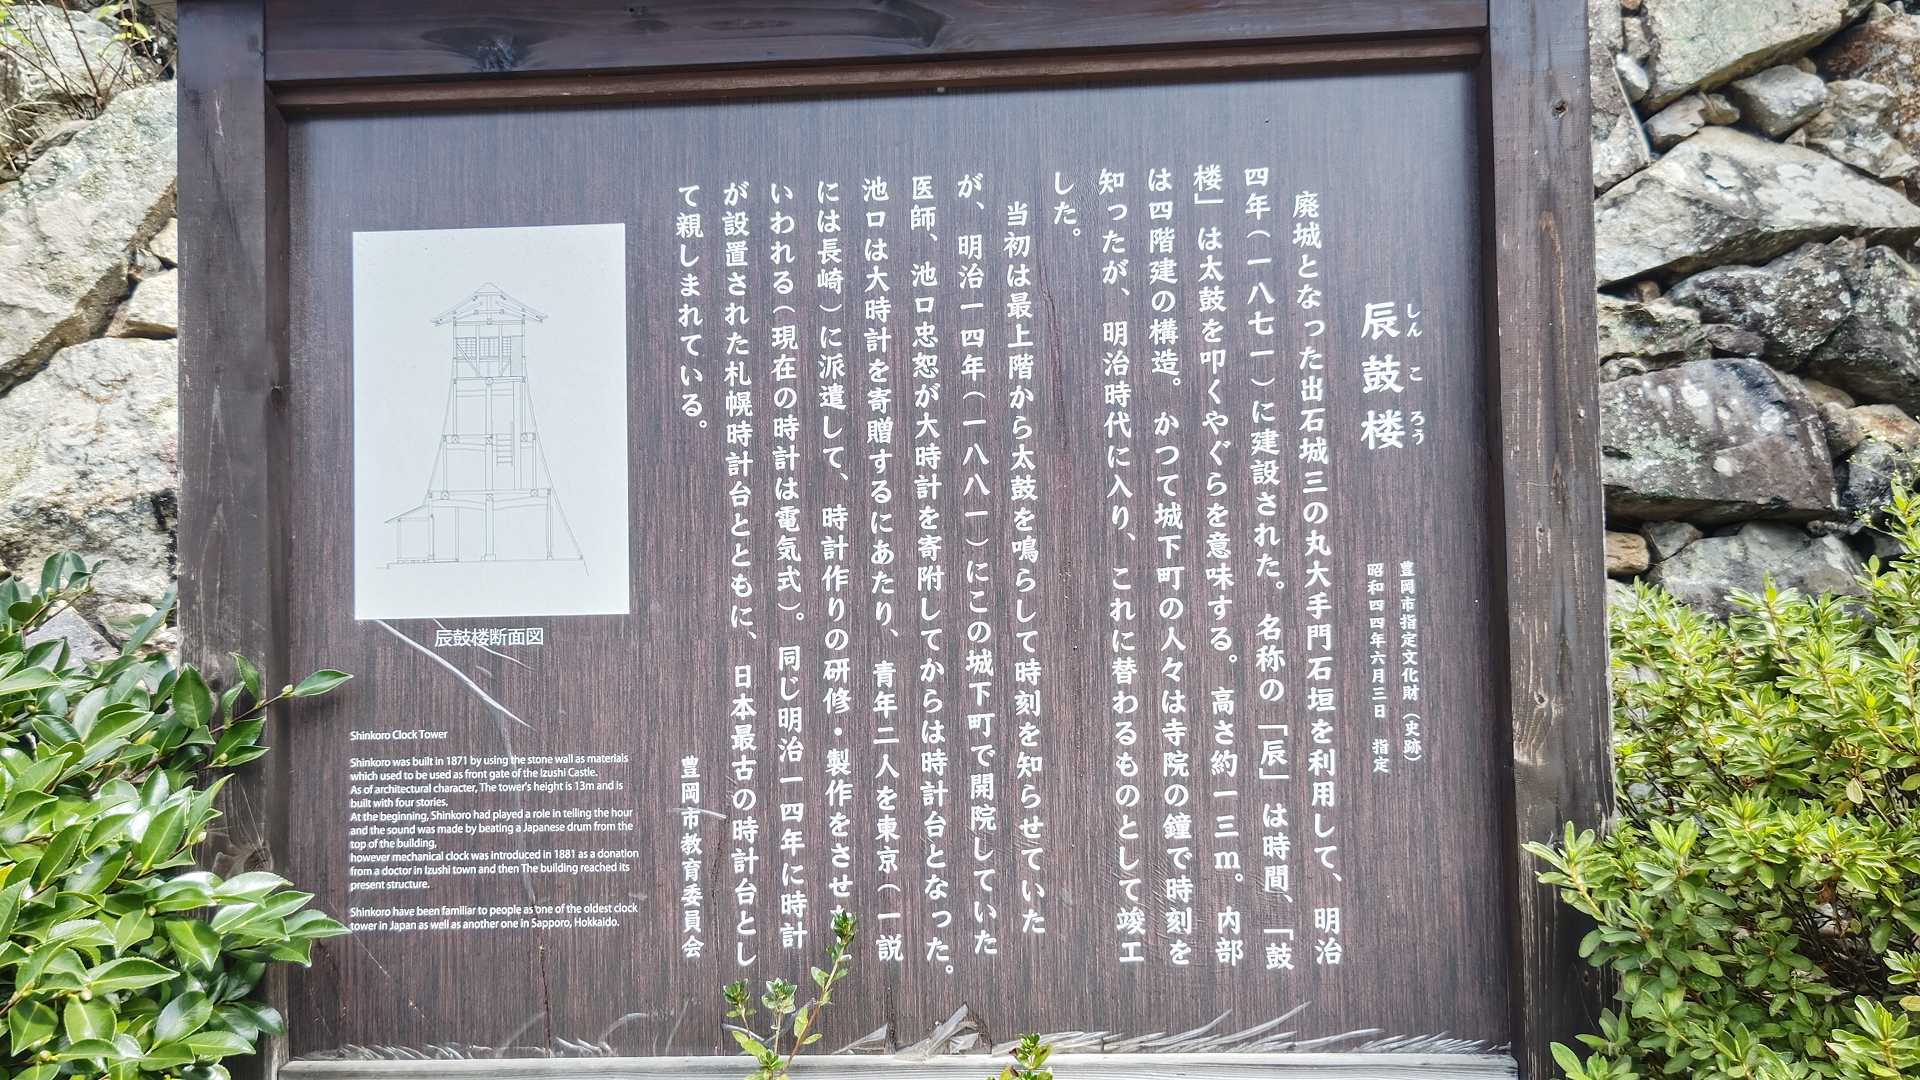 辰鼓楼
しんころう
豊岡市指定文化財（史跡）
昭和四四年六月三日　指定
廃城となった出石城三の丸大手門石垣を利用して、明治
四年（一八七一）に建設された。名称の「辰」は時間、「鼓
楼」は太鼓を叩くやぐらを意味する。高さ約一三ｍ。内部
は四階建の構造。かつて城下町の人々は寺院の鐘で時刻を
知ったが、明治時代に入り、これに替わるものとして竣工
した。
当初は最上階から太鼓を鳴らして時刻を知らせていた
が、明治一四年（一八八一）にこの城下町で開院していた
医師、池口忠恕が大時計を寄附してからは時計台となった。
池口は大時計を寄贈するにあたり、青年二人を東京（一説
には長崎）に派遣して、時計作りの研修・製作をさせ
いわれる（現在の時計は電気式）。同じ明治一四年に時計
が設置された札幌時計台とともに、日本最古の時計台とし
て親しまれている。
豊岡市教育委員会
辰鼓楼断面図
Shinkoro Clock Tower
Shinkoro was built in 1871 by using the stone wall as materials
which used to be used as front gate of the Izushi Castle.
As of architectural character, The tower's height is 13m and is
built with four stories.
At the beginning, Shinkoro had played a role in telling the hour
and the sound was made by beating a Japanese drum from the
top of the building,
however mechanical clock was introduced in 1881 as a donation
from a doctor in Izushi town and then The building reached its
present structure.
Shinkoro have been familiar to people as one of the oldest clock
tower in Japan as well as another one in Sapporo, Hokkaido.